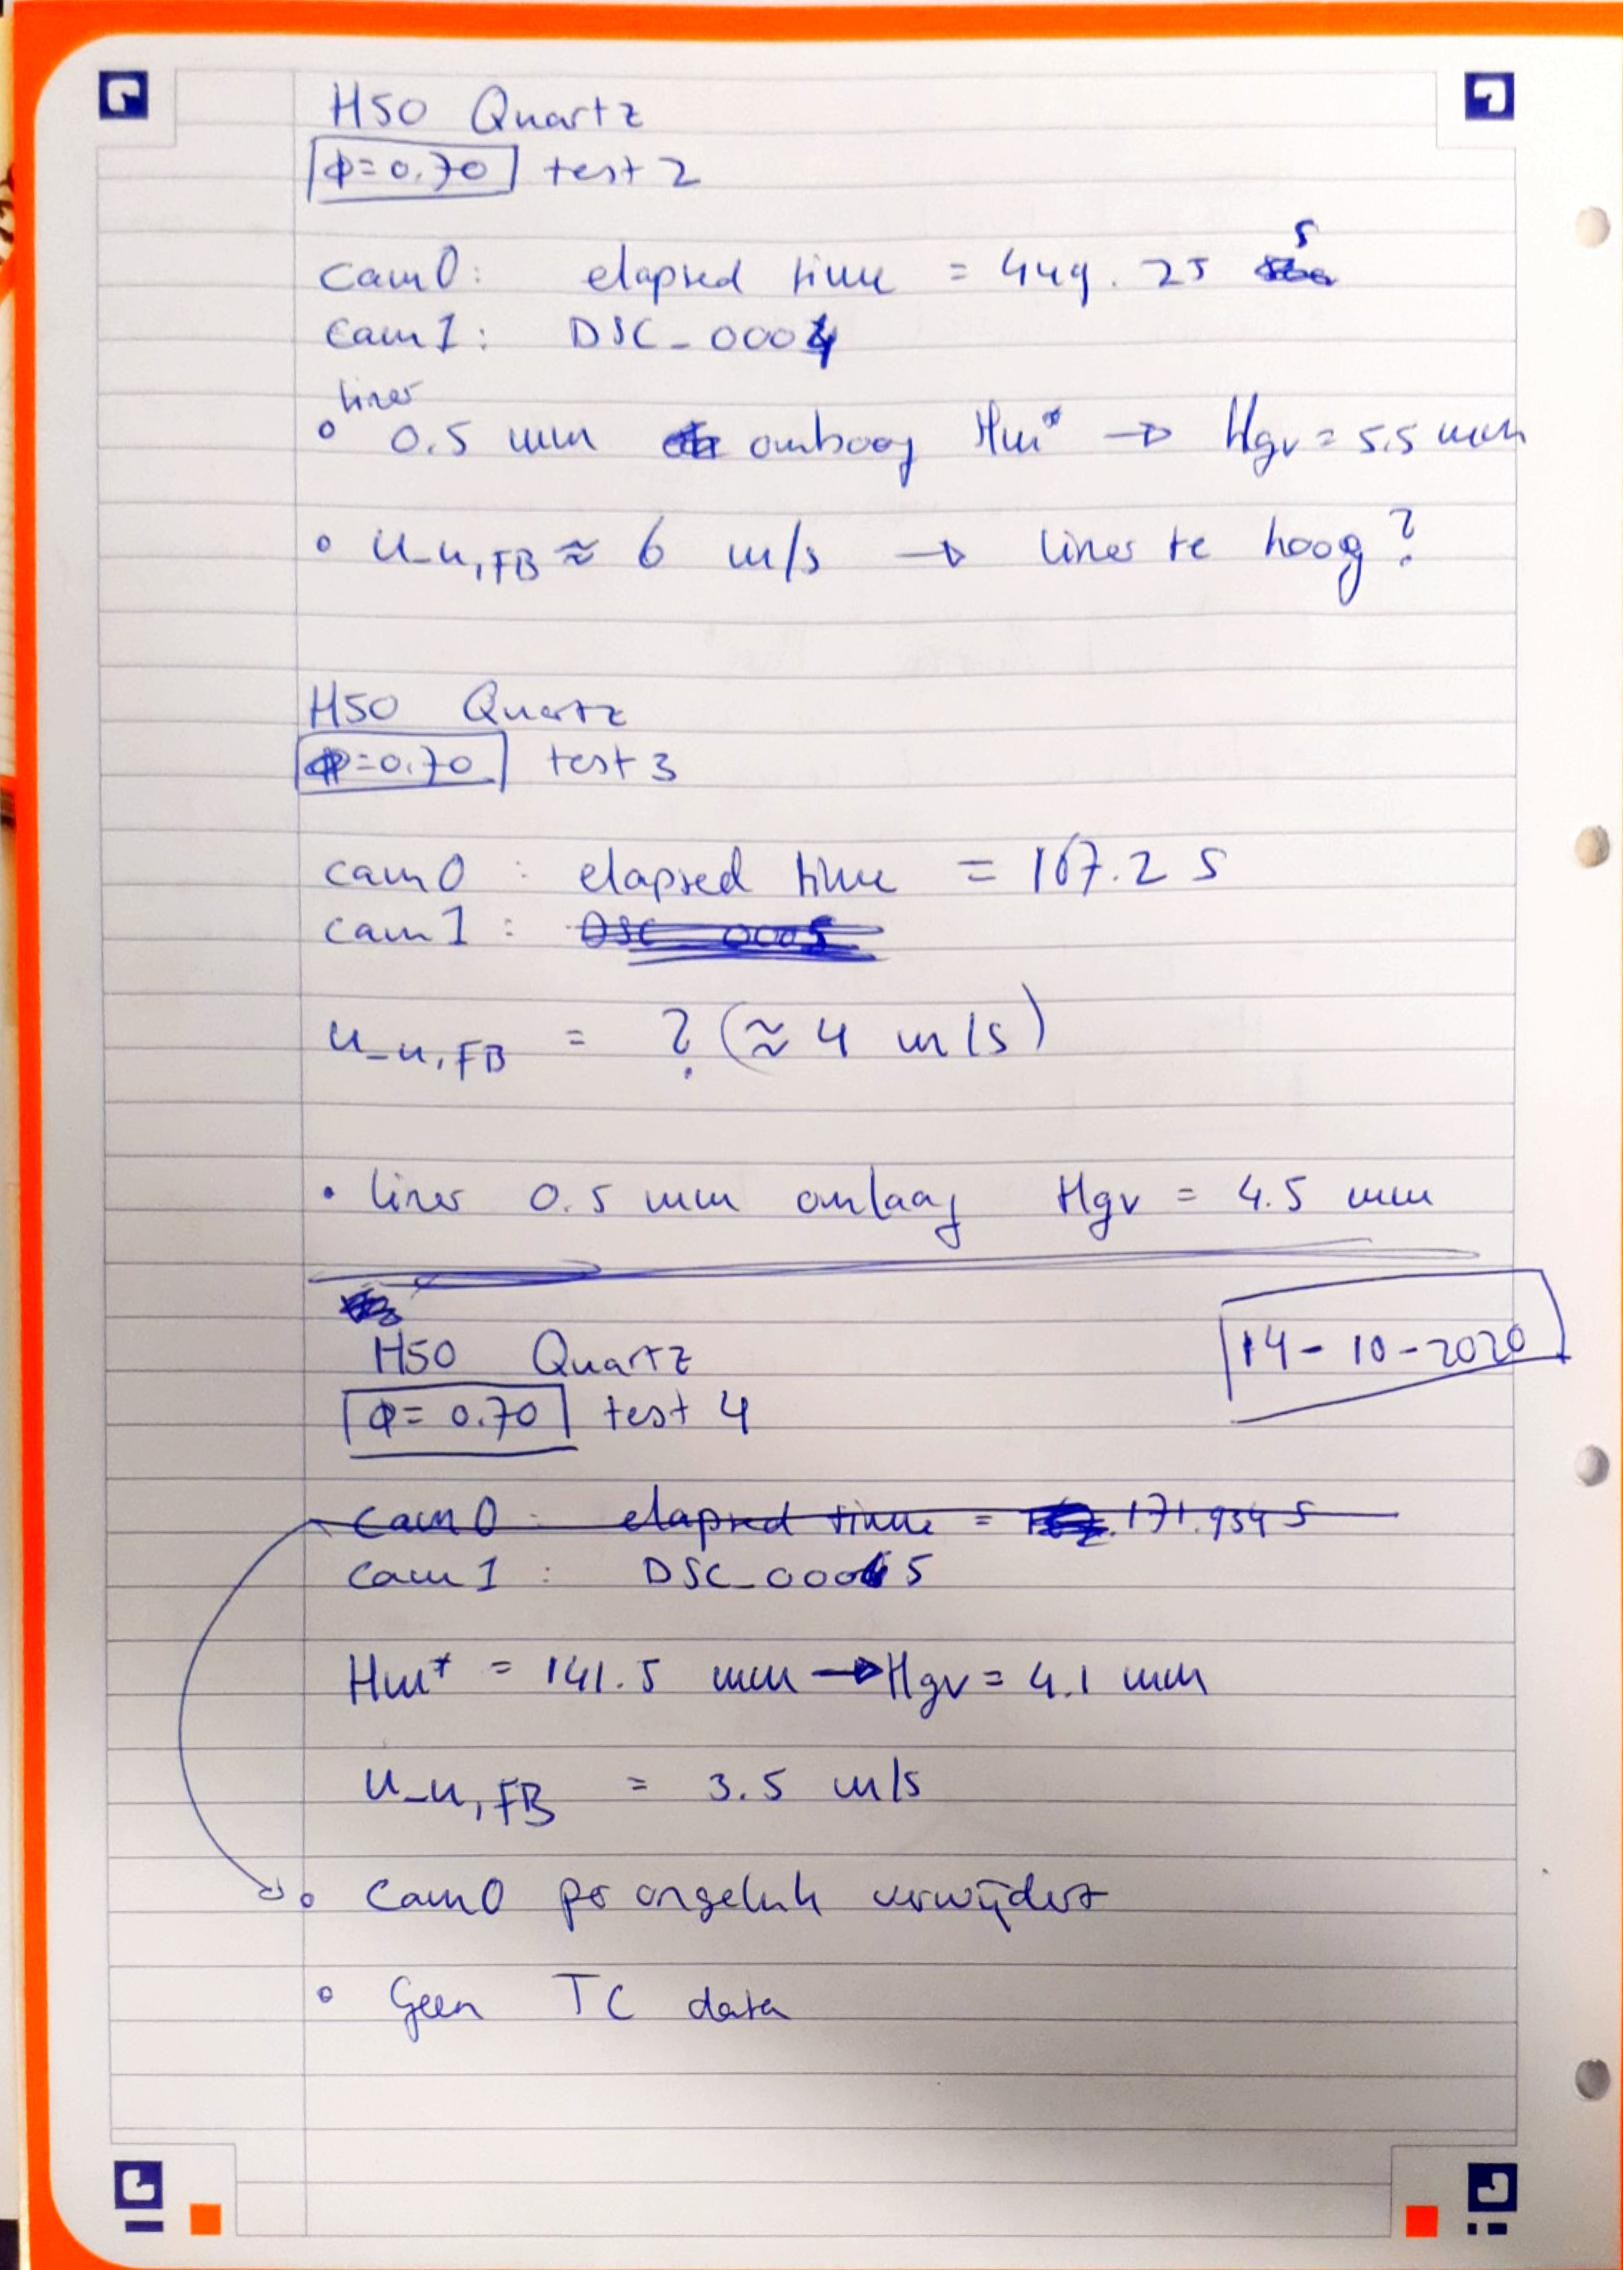 H50 Quartz
ϕ=0.70 test 2
cam0: elapsed time = 449.25 s
cam1: DSC_0004
liner
∘ 0.5 mm omhoog Hm* → Hgv = 5.5 mm
∘ u_u,FB ≈ 6 m/s → liner te hoog?
H50 Quartz
ϕ=0.70 test 3
cam0 : elapsed time = 167.2 s
cam1 : DSC_0005
u_u,FB = ? (≈ 4 m/s)
• liner 0.5 mm omlaag Hgv = 4.5 mm
14-10-2020
H50 Quartz
ϕ= 0.70 test 4
cam0 : elapsed time = 171.934 s
cam1 : DSC_0005
Hm* = 141.5 mm → Hgv = 4.1 mm
u_u,FB = 3.5 m/s
∘ cam0 per ongeluk verwijderd
∘ Geen TC data